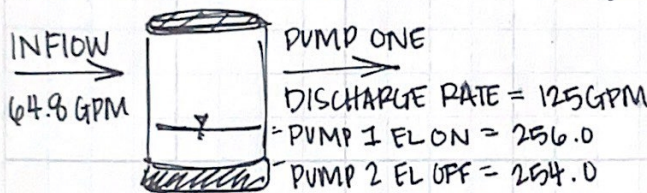 INFLOW
64.8 GPM
PUMP ONE
DISCHARGE RATE = 125GPM
PUMP 1 EL ON = 256.0
PUMP 2 EL OFF = 254.0